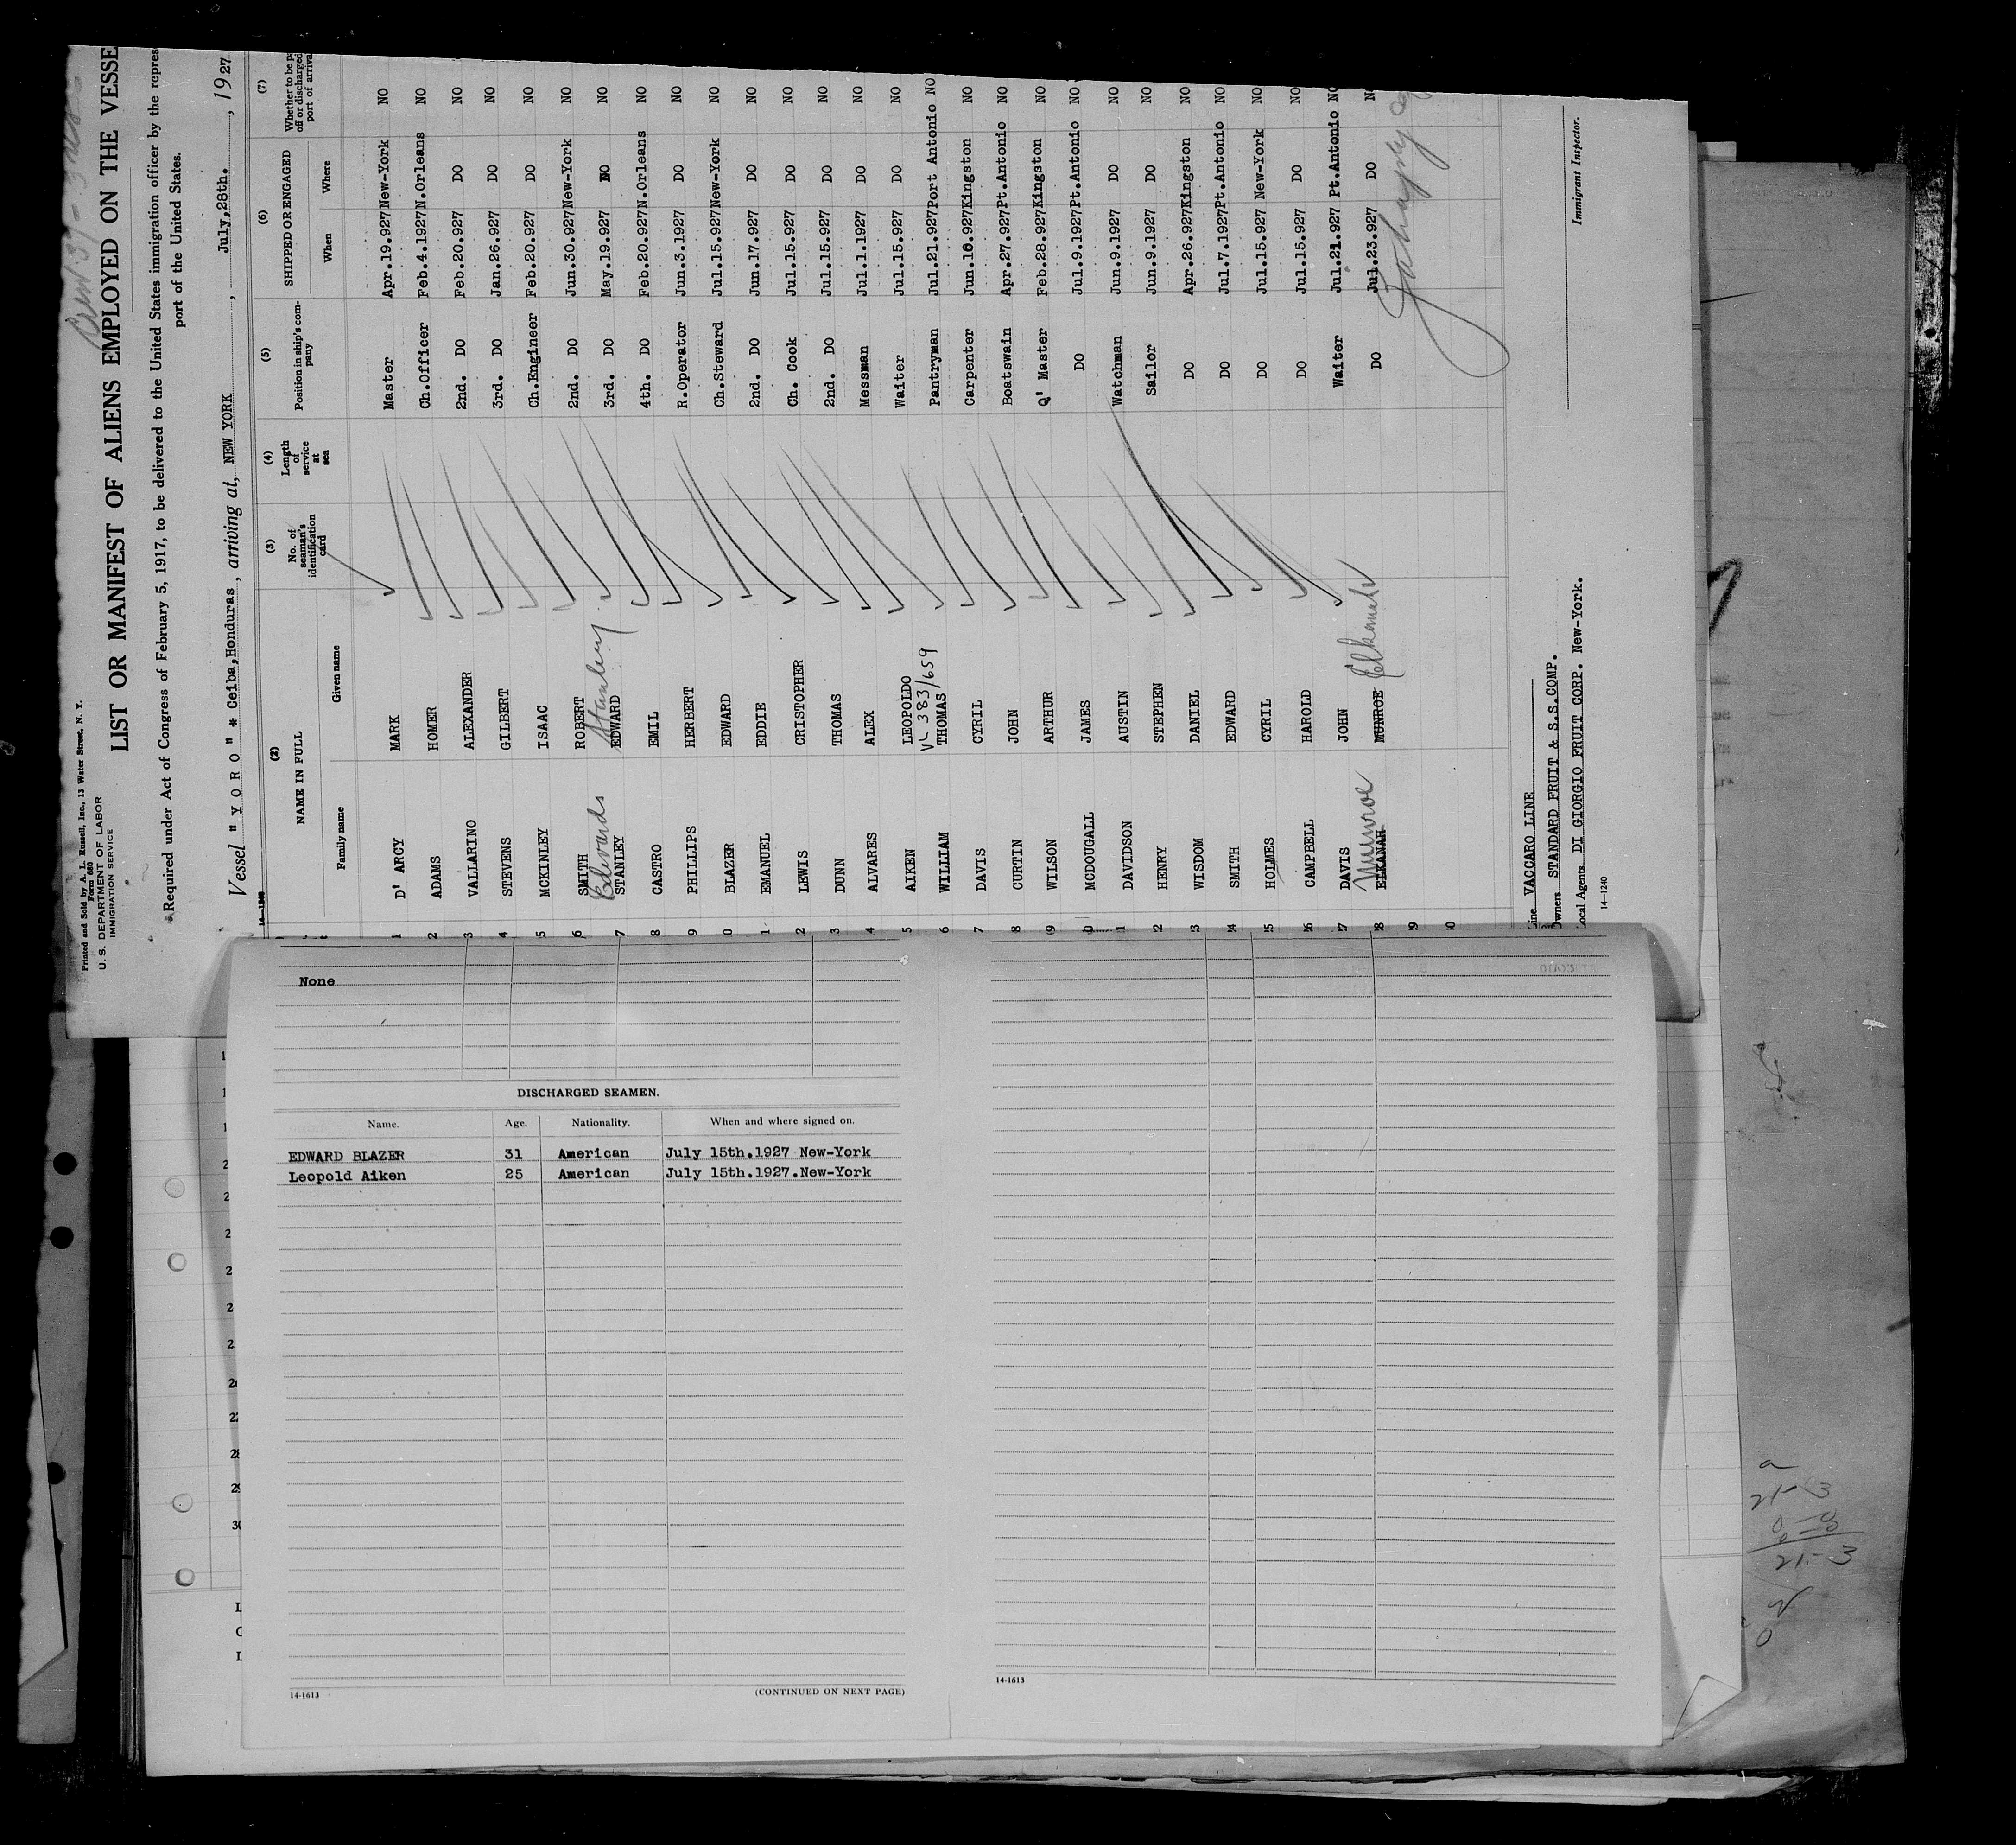 Printed and Sold by A. L. Russell, Inc., 13 Water Street, N. Y.
Form 680
U. S. DEPARTMENT OF LABOR
IMMIGRATION SERVICE
LIST OR MANIFEST OF ALIENS EMPLOYED ON THE VESSE
Required under Act of Congress of February 5, 1917, to be delivered to the United States immigration officer by the repres
port of the United States.
Vessel " Y O R O " * Ceiba,Honduras , arriving at, NEW YORK , July,28th. , 1927
(2) (3) (4) (5) (6) (7)
NAME IN FULL No. of seaman's identification card Length of service at sea Position in ship's company SHIPPED OR ENGAGED Whether to be p off or discharged port of arriva
Family name Given name When Where
1 D' ARCY MARK Master Apr.19.927 New-York NO
2 ADAMS HOMER Ch.Officer Feb.4.1927 N.Orleans NO
3 VALLARINO ALEXANDER 2nd. DO Feb.20.927 DO NO
4 STEVENS GILBERT 3rd. DO Jan.26.927 DO NO
5 MCKINLEY ISAAC Ch.Engineer Feb.20.927 DO NO
6 SMITH ROBERT 2nd. DO Jun.30.927 New-York NO
Edwards Stanley
7 STANLEY EDWARD 3rd. DO May.19.927 DO NO
8 CASTRO EMIL 4th. DO Feb.20.927 N.Orleans NO
9 PHILLIPS HERBERT R.Operator Jun.3.1927 DO NO
0 BLAZER EDWARD Ch.Steward Jul.15.927 New-York NO
1 EMANUEL EDDIE 2nd. DO Jun.17.927 DO NO
2 LEWIS CRISTOPHER Ch. Cook Jul.15.927 DO NO
3 DUNN THOMAS 2nd. DO Jul.15.927 DO NO
4 ALVARES ALEX Messman Jul.1.1927 DO NO
5 AIKEN LEOPOLDO Waiter Jul.15.927 DO NO
VL 383/659
6 WILLIAM THOMAS Pantryman Jul.21.927 Port Antonio NO
7 DAVIS CYRIL Carpenter Jun.10.927 Kingston NO
8 CURTIN JOHN Boatswain Apr.27.927 Pt.Antonio NO
9 WILSON ARTHUR Q' Master Feb.28.927 Kingston NO
0 MCDOUGALL JAMES DO Jul.9.1927 Pt.Antonio NO
1 DAVIDSON AUSTIN Watchman Jun.9.1927 DO NO
2 HENRY STEPHEN Sailor Jun.9.1927 DO NO
3 WISDOM DANIEL DO Apr.26.927 Kingston NO
4 SMITH EDWARD DO Jul.7.1927 Pt.Antonio NO
5 HOLMES CYRIL DO Jul.15.927 New-York NO
6 CAMPBELL HAROLD DO Jul.15.927 DO NO
7 DAVIS JOHN Waiter Jul.21.927 Pt.Antonio NO
Munroe Elkanah
8 ELKANAH MUNROE DO Jul.23.927 DO N
9
0
Immigrant Inspector.
ine VACCARO LINE
wners STANDARD FRUIT & S.S.COMP.
ocal Agents DI GIORGIO FRUIT CORP. New-York.
14—1240
None
DISCHARGED SEAMEN.
Name. Age. Nationality. When and where signed on.
EDWARD BLAZER 31 American July 15th.1927 New-York
Leopold Aiken 25 American July 15th.1927.New-York
14-1613
(CONTINUED ON NEXT PAGE)
14-1613
28
29
30